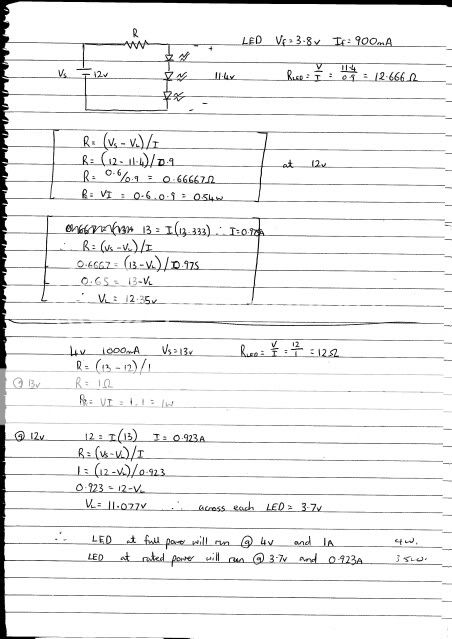 R
LED Vf = 3.8v If = 900mA
+
Vs 12v 11.4v RLED = V/I = 11.4/0.9 = 12.666Ω
-
R = (Vs - VL)/I
R = (12 - 11.4)/0.9 at 12v
R = 0.6/0.9 = 0.66667Ω
P = VI = 0.6 . 0.9 = 0.54w
13 = I(13.333) ∴ I = 0.975A
∴ R = (Vs - VL)/I
0.6667 = (13 - VL)/0.975
0.65 = 13 - VL
∴ VL = 12.35v
4v 1000mA Vs = 13v RLED = V/I = 12/1 = 12Ω
R = (13 - 12)/1
@ 13v R = 1Ω
PR = VI = 1.1 = 1w
@ 12v 12 = I(13) I = 0.923A
R = (Vs - VL)/I
1 = (12 - VL)/0.923
0.923 = 12 - VL
VL = 11.077v ∴ across each LED = 3.7v
∴ LED at full power will run @ 4v and 1A 4w.
LED at rated power will run @ 3.7v and 0.923A 3.5w.